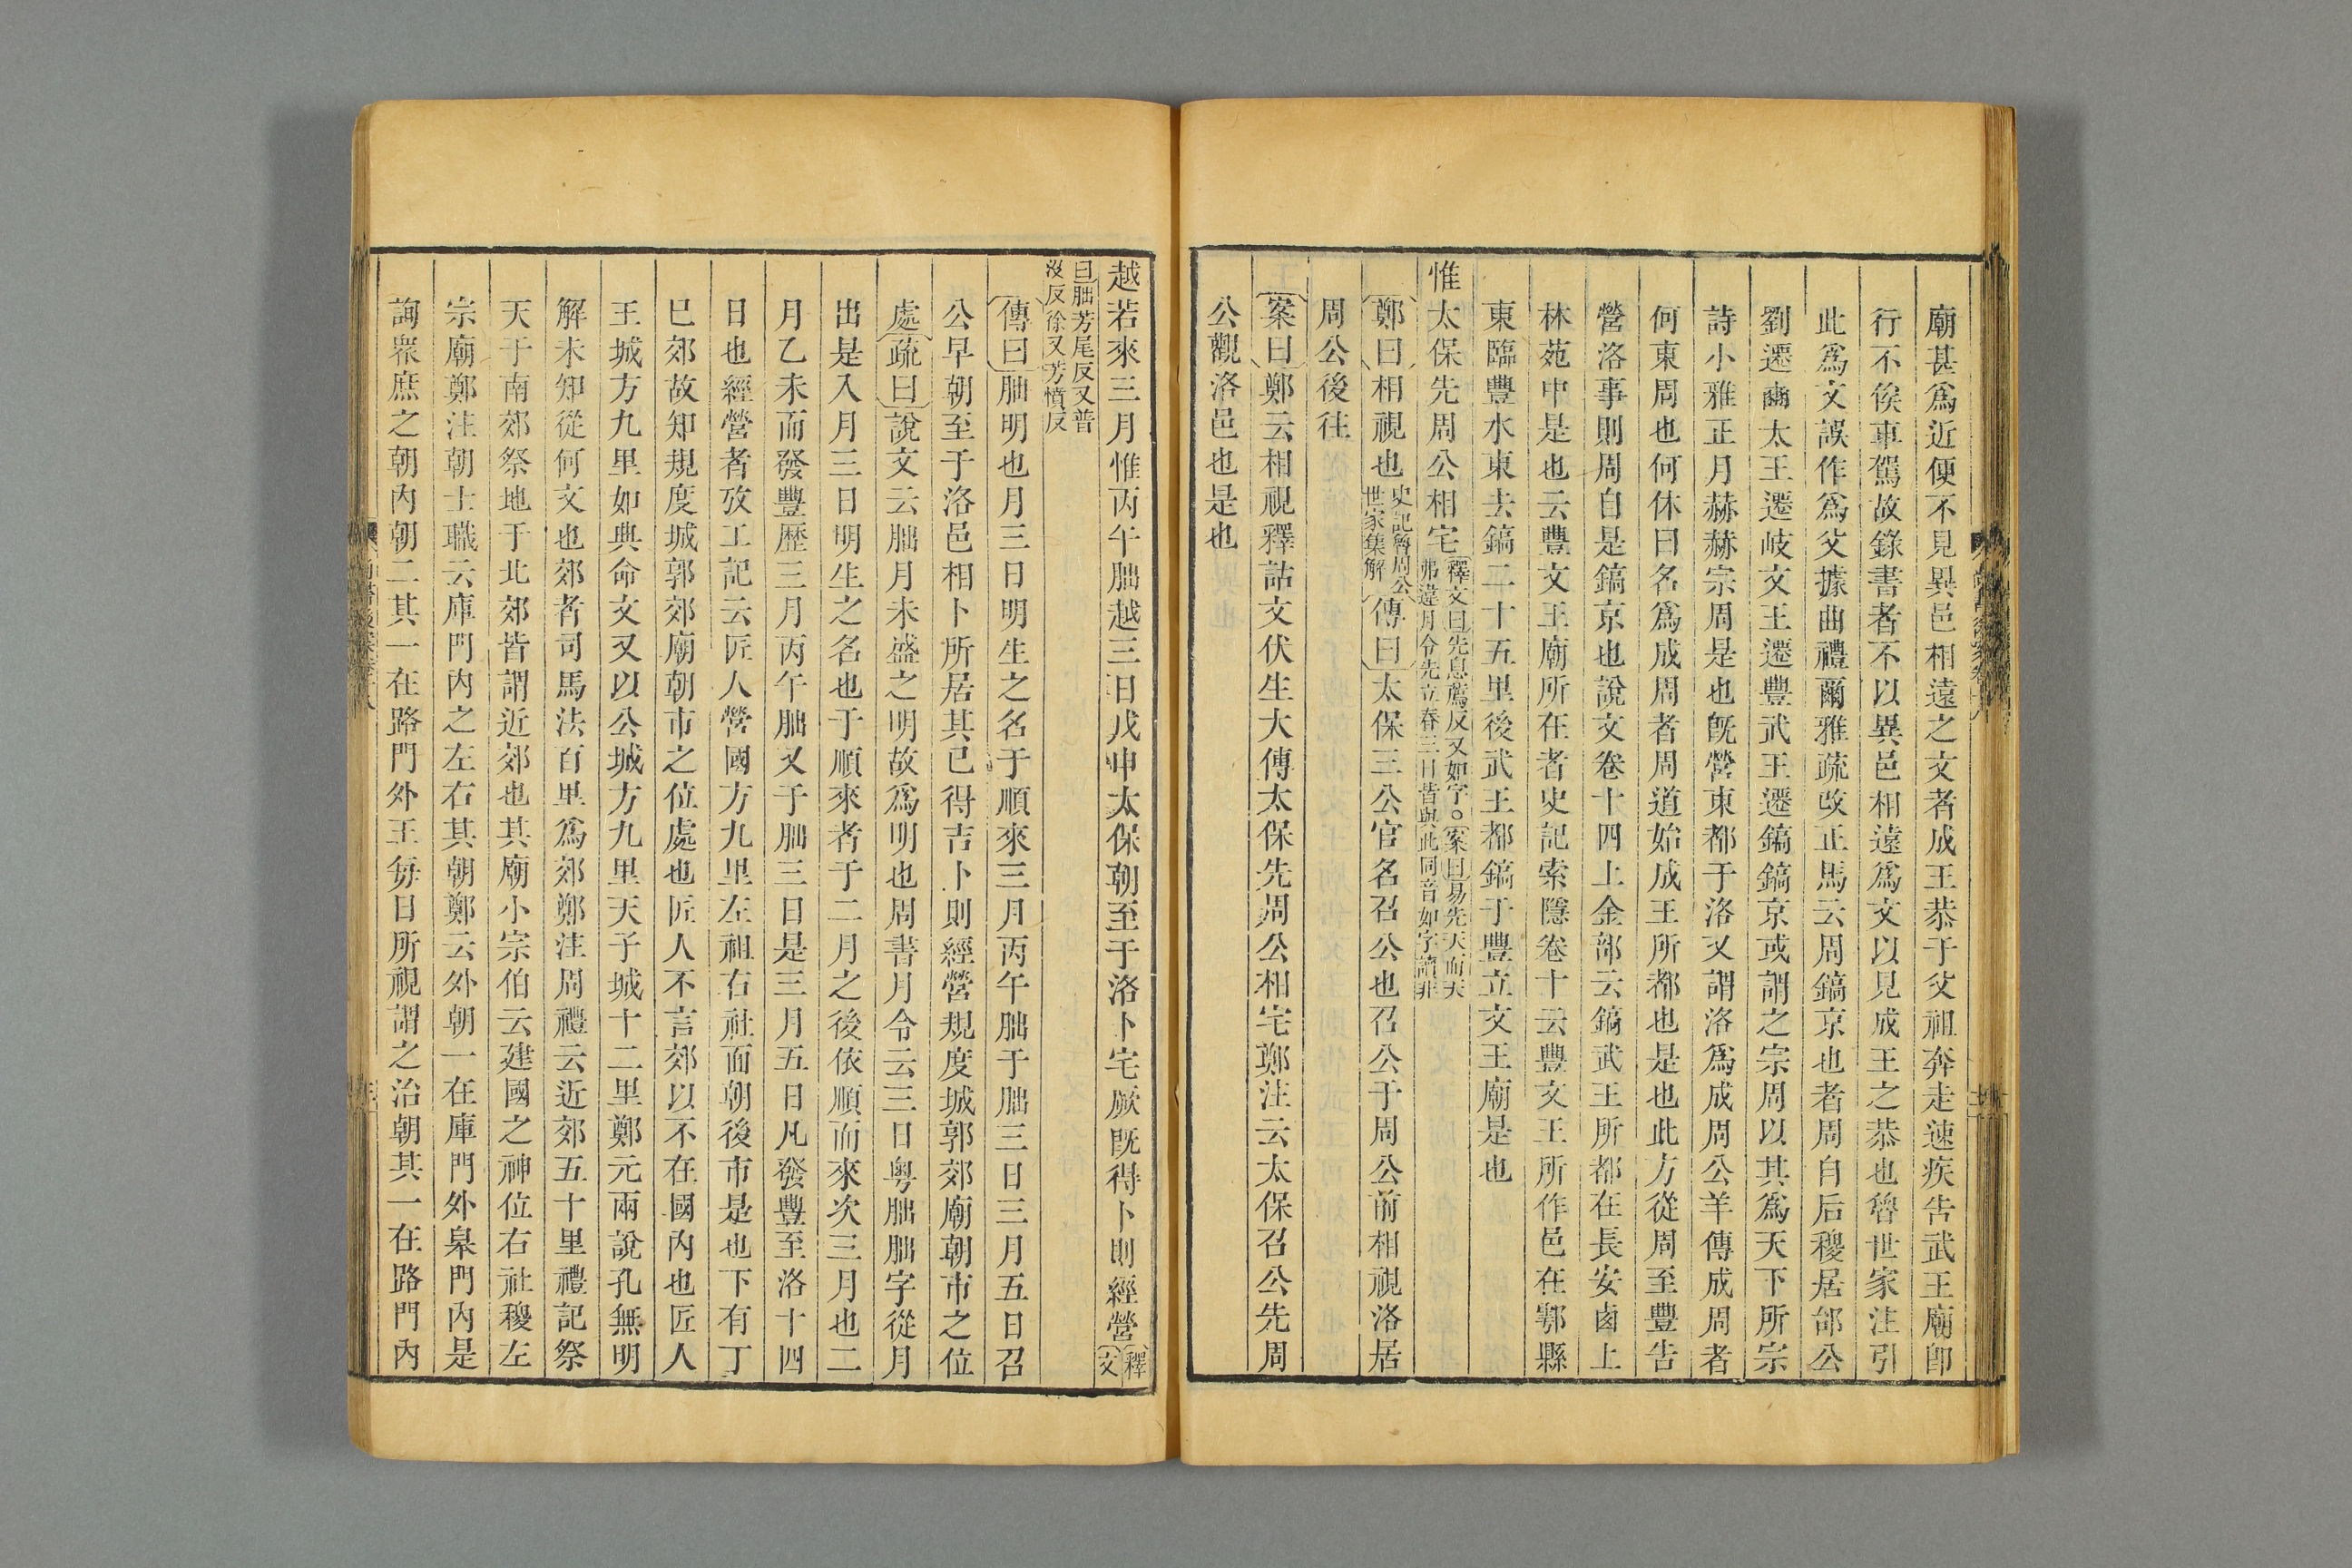 廟甚爲近便不見異邑相遠之文者成王恭于父祖奔走速疾告武王廟卽
行不俟車駕故錄書者不以異邑相遠爲文以見成王之恭也魯世家注引
此爲文誤作爲父據曲禮爾雅疏改正馬云周鎬京也者周自后稷居邰公
劉遷豳太王遷岐文王遷豐武王遷鎬鎬京或謂之宗周以其爲天下所宗
詩小雅正月赫赫宗周是也旣營東都于洛又謂洛爲成周公羊傳成周者
何東周也何休曰名爲成周者周道始成王所都也是也此方從周至豐告
營洛事則周自是鎬京也說文卷十四上金部云鎬武王所都在長安鹵上
林苑中是也云豐文王廟所在者史記索隱卷十云豐文王所作邑在鄠縣
東臨豐水東去鎬二十五里後武王都鎬于豐立文王廟是也
惟太保先周公相宅釋文曰先息薦反又如字○案曰易先天而天
弗違月令先立春三日皆與此同音如字讀非
鄭曰相視也史記魯周公
世家集解傳曰太保三公官名召公也召公于周公前相視洛居
周公後往
案曰鄭云相視釋詁文伏生大傳太保先周公相宅鄭注云太保召公先周
公觀洛邑也是也
越若來三月惟丙午朏越三日戊申太保朝至于洛卜宅厥旣得卜則經營釋
文
曰朏芳尾反又普
沒反徐又芳憒反
傳曰朏明也月三日明生之名于順來三月丙午朏于朏三日三月五日召
公早朝至于洛邑相卜所居其已得吉卜則經營規度城郭郊廟朝市之位
處疏曰說文云朏月未盛之明故爲明也周書月令云三日粤朏朏字從月
出是入月三日明生之名也于順來者于二月之後依順而來次三月也二
月乙未而發豐歷三月丙午朏又于朏三日是三月五日凡發豐至洛十四
日也經營者攷工記云匠人營國方九里左祖右社面朝後市是也下有丁
巳郊故知規度城郭郊廟朝市之位處也匠人不言郊以不在國內也匠人
王城方九里如典命文又以公城方九里天子城十二里鄭元兩說孔無明
解未知從何文也郊者司馬法百里爲郊鄭注周禮云近郊五十里禮記祭
天于南郊祭地于北郊皆謂近郊也其廟小宗伯云建國之神位右社稷左
宗廟鄭注朝士職云庫門內之左右其朝鄭云外朝一在庫門外皋門內是
詢眾庶之朝內朝二其一在路門外王每日所視謂之治朝其一在路門內